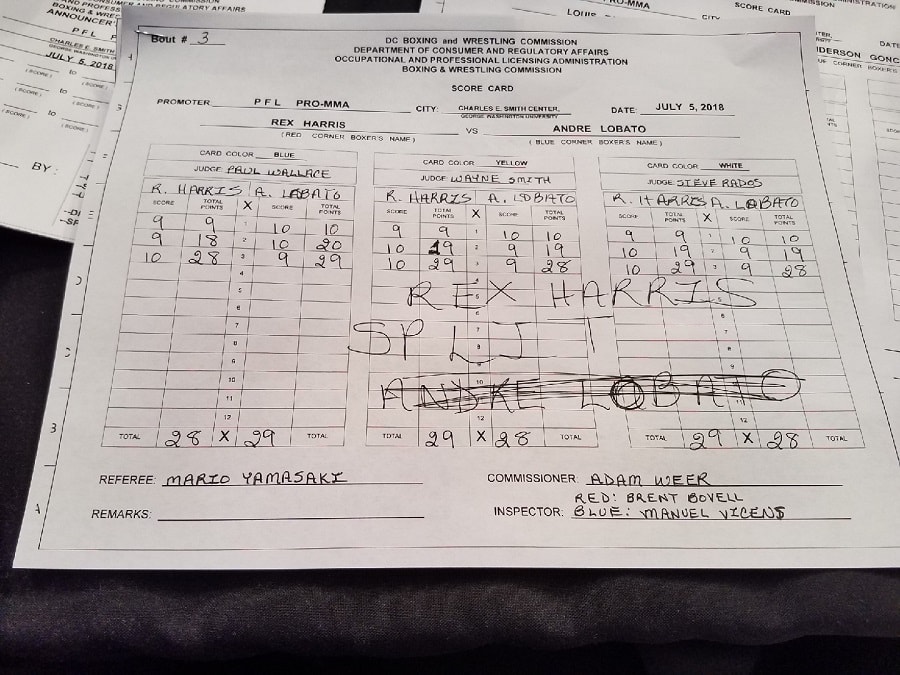 SUMER AND REGULATORY AFFAIRS
AND PROFESS
BOXING & WREST
ANNOUNCER
PFL P
CHARLES E. SMITH
JULY 5, 2018
(SCORE) to
(SCORE) to
(SCORE) to
BY:
RO-MMA
CITY
SCORE CARD
DERSON GONC
DATE
Bout # 3
DC BOXING and WRESTLING COMMISSION
DEPARTMENT OF CONSUMER AND REGULATORY AFFAIRS
OCCUPATIONAL AND PROFESSIONAL LICENSING ADMINISTRATION
BOXING & WRESTLING COMMISSION
SCORE CARD
PROMOTER PFL PRO-MMA CITY: CHARLES E. SMITH CENTER, DATE: JULY 5, 2018
GEORGE WASHINGTON UNIVERSITY
REX HARRIS VS ANDRE LOBATO
( RED CORNER BOXER'S NAME ) ( BLUE CORNER BOXER'S NAME )
CARD COLOR BLUE CARD COLOR YELLOW CARD COLOR WHITE
JUDGE PAUL WALLACE JUDGE WAYNE SMITH JUDGE STEVE RADOS
R. HARRIS A. LOBATO R. HARRIS A. LOBATO R. HARRIS A. LOBATO
SCORE TOTAL POINTS X SCORE TOTAL POINTS SCORE TOTAL POINTS X SCORE TOTAL POINTS SCORE TOTAL POINTS X SCORE TOTAL POINTS
9 9 10 10 9 9 1 10 10 9 9 1 10 10
9 18 2 10 20 10 19 2 9 19 10 19 2 9 19
10 28 3 9 29 10 29 3 9 28 10 29 3 9 28
4
5 5 5
REX HARRIS
6 6 6
7 7 7
SPLIT
8 8 8
9 9 9
10 10
ANDRE LOBATO
11 11
12 12 12
TOTAL 28 X 29 TOTAL TOTAL 29 X 28 TOTAL TOTAL 29 X 28 TOTAL
REFEREE: MARIO YAMASAKI COMMISSIONER: ADAM WEER
RED: BRENT BOVELL
REMARKS: INSPECTOR: BLUE: MANUEL VICENS